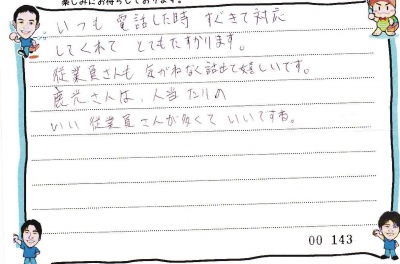 楽しみにお待ちしております。
いつも 電話した時 すぐきて対応
してくれて とてもたすかります。
従業員さんも 気がねなく話せて嬉しいです。
鹿光さんは、人当たりの
いい 従業員さんが多くて いいですね。
00 143